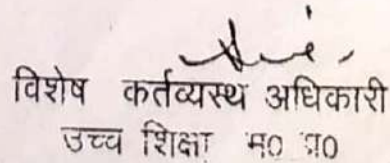 विशेष कर्तव्यस्थ अधिकारी
उच्च शिक्षा म० प्र०